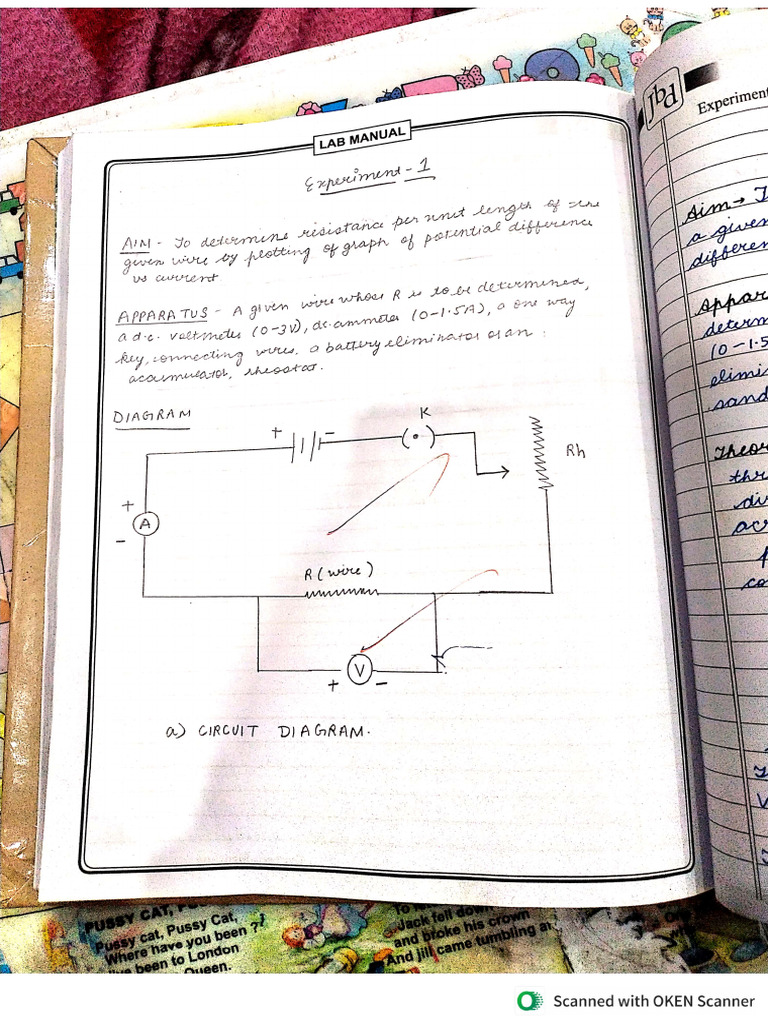 LAB MANUAL
Experiment - 1
AIM - To determine resistance per unit length of the
given wire by plotting of graph of potential difference
vs current.
APPARATUS - A given wire whose R is to be determined,
a d.c. voltmeter (0-3V), dc ammeter (0-1.5A), a one way
key, connecting wires, a battery eliminator or an
accumulator, rheostat.
DIAGRAM
+
-
K
Rh
+
A
-
R (wire)
V
+
-
a) CIRCUIT DIAGRAM.
jbd
Experiment
Aim → T
a given
differen
Appar
determ
(0-1.5
elimi
sand
Theor
thr
di
acr
co
PUSSY CAT,
Pussy cat, Pussy Cat,
Where have you been ?
been to London
Queen.
Jack fell dow
and broke his crown
And jill came tumbling a
Scanned with OKEN Scanner